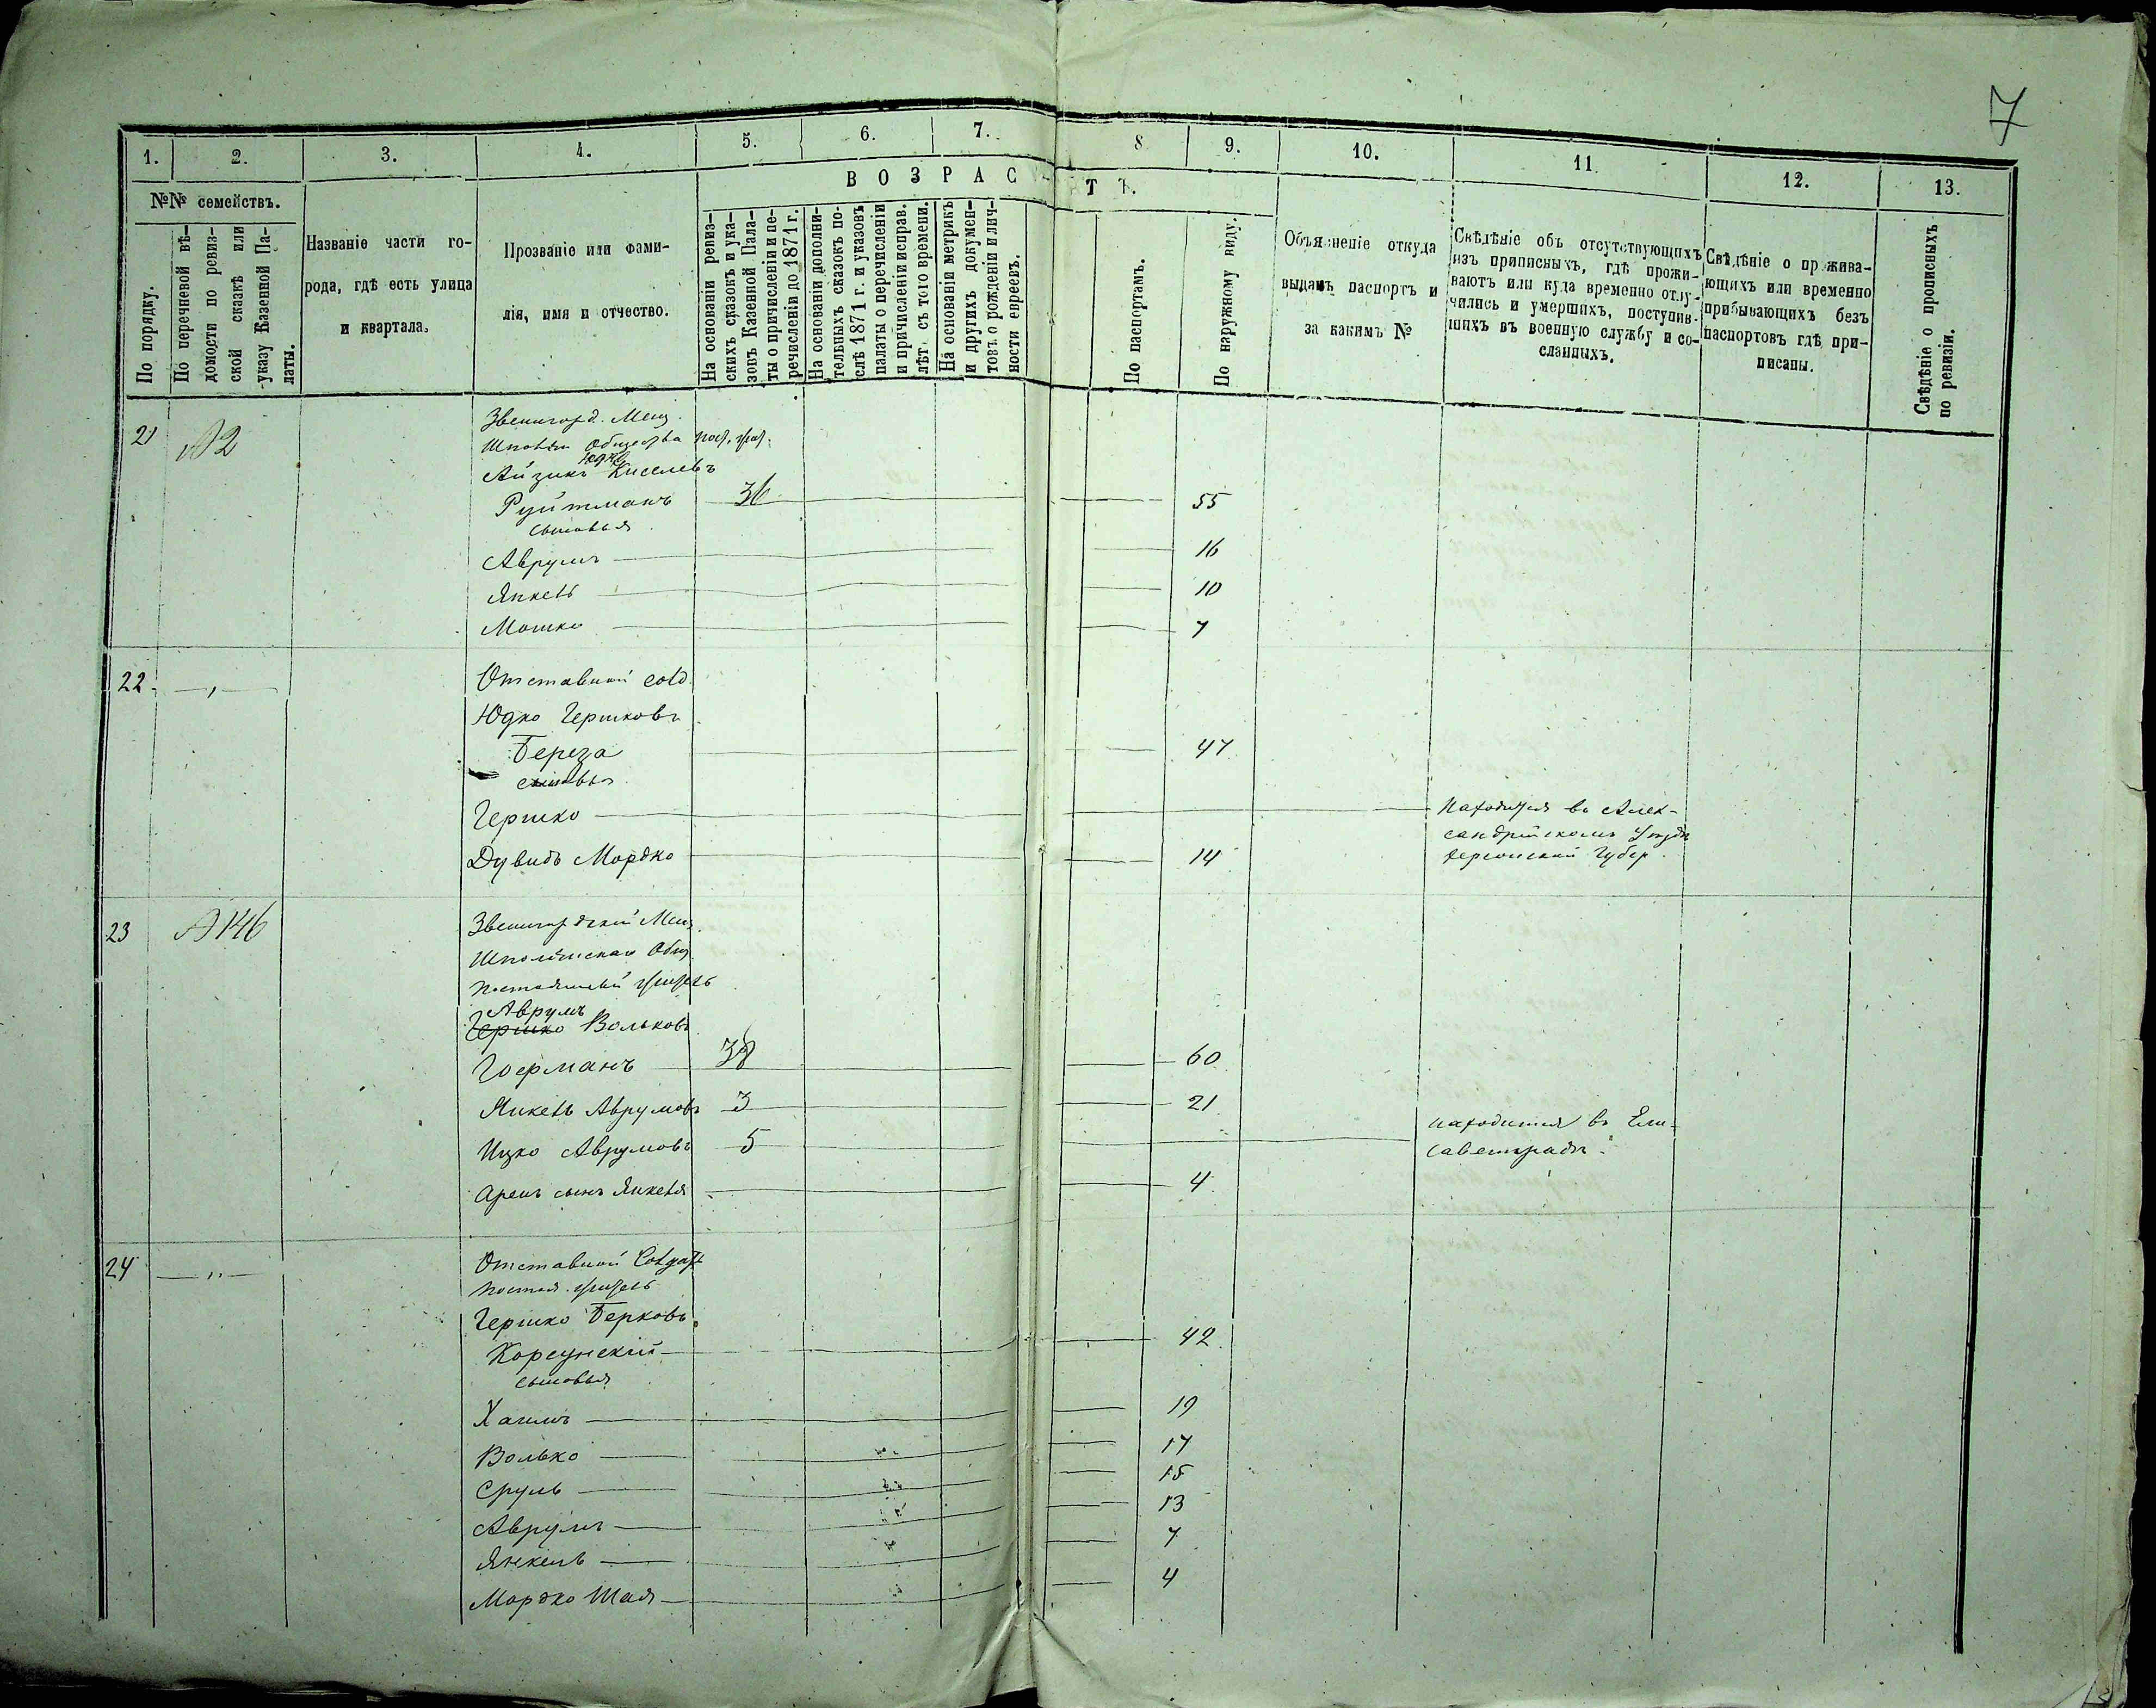 7
1. 2. 3. 4. 5. 6. 7. 8 9. 10. 11. 12. 13.
№№ семействъ.
В О З Р А С Т Ъ.
По порядку.
По перечневой вѣ-
домости по ревиз-
ской сказкѣ или
указу Казенной Па-
латы.
Названіе части го-
рода, гдѣ есть улица
и квартала.
Прозваніе или фами-
лія, имя и отчество.
На основаніи ревиз-
скихъ сказокъ и ука-
зовъ Казенной Пала-
ты о причисленіи и пе-
речисленіи до 1871 г.
На основаніи дополни-
тельныхъ сказокъ по-
слѣ 1871 г. и указовъ
палаты о перечисленіи
и причисленіи исправ.
лѣт. съ того времени.
На основаніи метрикъ
и другихъ докумен-
товъ о рожденіи и лич-
ности евреевъ.
По паспортамъ.
По наружному виду.
Объясненіе откуда
выданъ паспортъ и
за какимъ №
Свѣдѣніе объ отсутствующихъ
изъ приписныхъ, гдѣ прожи-
ваютъ или куда временно отлу-
чились и умершихъ, поступив-
шихъ въ военную службу и со-
сланныхъ.
Свѣдѣніе о прожива-
ющихъ или временно
прибывающихъ безъ
паспортовъ гдѣ при-
писаны.
Свѣдѣніе о прописныхъ
по ревизіи.
21 №2 Звенигород. Мещ.
Общества
Юдко
Айзикъ Киселевъ
Руйтманъ 36 55
сыновья
Аврумъ 16
Янкель 10
Мошко 7
22 Отставной солд.
Юдко Гершковъ
Береза 47
сыновья
Гершко Находится въ Алек-
сандрійскомъ Уѣздѣ
Херсонской Губер.
Дувидъ Мордко 14
23 №146 Звенигородский Мещ.
Шполянскаго Общ.
Постоянный житель
Аврумъ
Гершко Вольковъ
Гоерманъ 38 60
Янкель Аврумовъ 3 21
Ицко Аврумовъ 5 находится въ Ели-
саветградѣ.
Аренъ сынъ Янкеля 4
24 Отставной Солдатъ
Постоя. житель
Гершко Берковъ
Корсунскій 42
сыновья
Хаимъ 19
Волько 17
Сруль 15
Аврумъ 13
Янкель 7
Мордко Шая 4